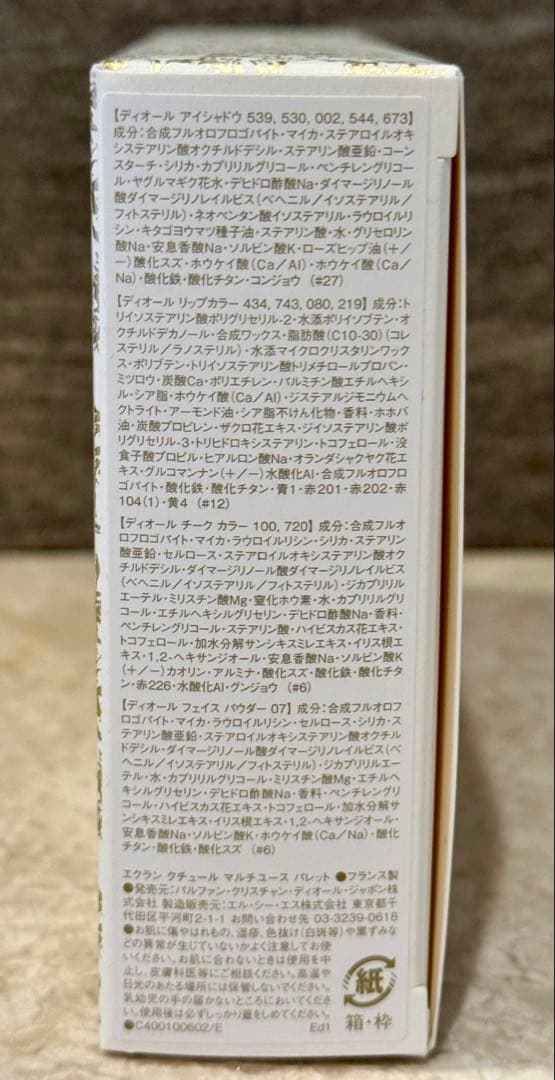 【ディオール アイシャドウ 539, 530, 002, 544, 673】
成分：合成フルオロフロゴパイト・マイカ・ステアロイルオキ
システアリン酸オクチルドデシル・ステアリン酸亜鉛・コーン
スターチ・シリカ・カプリリルグリコール・ペンチレングリコー
ル・ヤグルマギク花水・デヒドロ酢酸Na・ダイマージリノール
酸ダイマージリノレイルビス（ベヘニル／イソステアリル／
フィトステリル）・ネオペンタン酸イソステアリル・ラウロイルリ
シン・キタゴヨウマツ種子油・ステアリン酸・水・グリセロリン
酸Na・安息香酸Na・ソルビン酸K・ローズヒップ油（＋／
－）酸化スズ・ホウケイ酸（Ca／Al）・ホウケイ酸（Ca／
Na）・酸化鉄・酸化チタン・コンジョウ （#27）
【ディオール リップカラー 434, 743, 080, 219】 成分：ト
リイソステアリン酸ポリグリセリル-2・水添ポリイソブテン・オ
クチルドデカノール・合成ワックス・脂肪酸（C10-30）（コレ
ステリル／ラノステリル）・水添マイクロクリスタリンワック
ス・ポリブテン・トリイソステアリン酸トリメチロールプロパン・
ミツロウ・炭酸Ca・ポリエチレン・パルミチン酸エチルヘキシ
ル・シア脂・ホウケイ酸（Ca／Al）・ジステアルジモニウムヘ
クトライト・アーモンド油・シア脂不けん化物・香料・ホホバ
油・炭酸プロピレン・ザクロ花エキス・ジイソステアリン酸ポ
リグリセリル-3・トリヒドロキシステアリン・トコフェロール・没
食子酸プロピル・ヒアルロン酸Na・オランダシャクヤク花エ
キス・グルコマンナン（＋／－）水酸化Al・合成フルオロフ
ロゴパイト・酸化鉄・酸化チタン・青1・赤201・赤202・赤
104（1）・黄4 （#12）
【ディオール チーク カラー 100, 720】 成分：合成フルオ
ロフロゴパイト・マイカ・ラウロイルリシン・シリカ・ステアリン
酸亜鉛・セルロース・ステアロイルオキシステアリン酸オク
チルドデシル・ダイマージリノール酸ダイマージリノレイルビス
（ベヘニル／イソステアリル／フィトステリル）・ジカプリリル
エーテル・ミリスチン酸Mg・窒化ホウ素・水・カプリリルグリ
コール・エチルヘキシルグリセリン・デヒドロ酢酸Na・香料・
ペンチレングリコール・ステアリン酸・ハイビスカス花エキス・
トコフェロール・加水分解サンシキスミレエキス・イリス根エ
キス・1,2-ヘキサンジオール・安息香酸Na・ソルビン酸K
（＋／－）カオリン・アルミナ・酸化スズ・酸化鉄・酸化チタ
ン・赤226・水酸化Al・グンジョウ （#6）
【ディオール フェイス パウダー 07】 成分：合成フルオロフ
ロゴパイト・マイカ・ラウロイルリシン・セルロース・シリカ・ス
テアリン酸亜鉛・ステアロイルオキシステアリン酸オクチル
ドデシル・ダイマージリノール酸ダイマージリノレイルビス（ベ
ヘニル／イソステアリル／フィトステリル）・ジカプリリルエー
テル・水・カプリリルグリコール・ミリスチン酸Mg・エチルヘ
キシルグリセリン・デヒドロ酢酸Na・香料・ペンチレングリ
コール・ハイビスカス花エキス・トコフェロール・加水分解サ
ンシキスミレエキス・イリス根エキス・1,2-ヘキサンジオール・
安息香酸Na・ソルビン酸K・ホウケイ酸（Ca／Na）・酸化
チタン・酸化鉄・酸化スズ （#6）
エクラン クチュール マルチユース パレット ●フランス製
●発売元：パルファン・クリスチャン・ディオール・ジャポン株
式会社 製造販売元：エル・シー・エス株式会社 東京都千
代田区平河町2-1-1 お問い合わせ先 03-3239-0618
●お肌に傷やはれもの、湿疹、色抜け（白斑等）や黒ずみな
どの異常が生じていないかよく注意してお使
いください。お肌に合わないときは使用を中
止し、皮膚科医等にご相談ください。高温や
日光のあたる場所には保管しないでください。
乳幼児の手の届かないところにおいてくださ
い。使用後は必ずしっかり蓋をしめてください。
●C400100602/E Ed1
紙
箱・枠